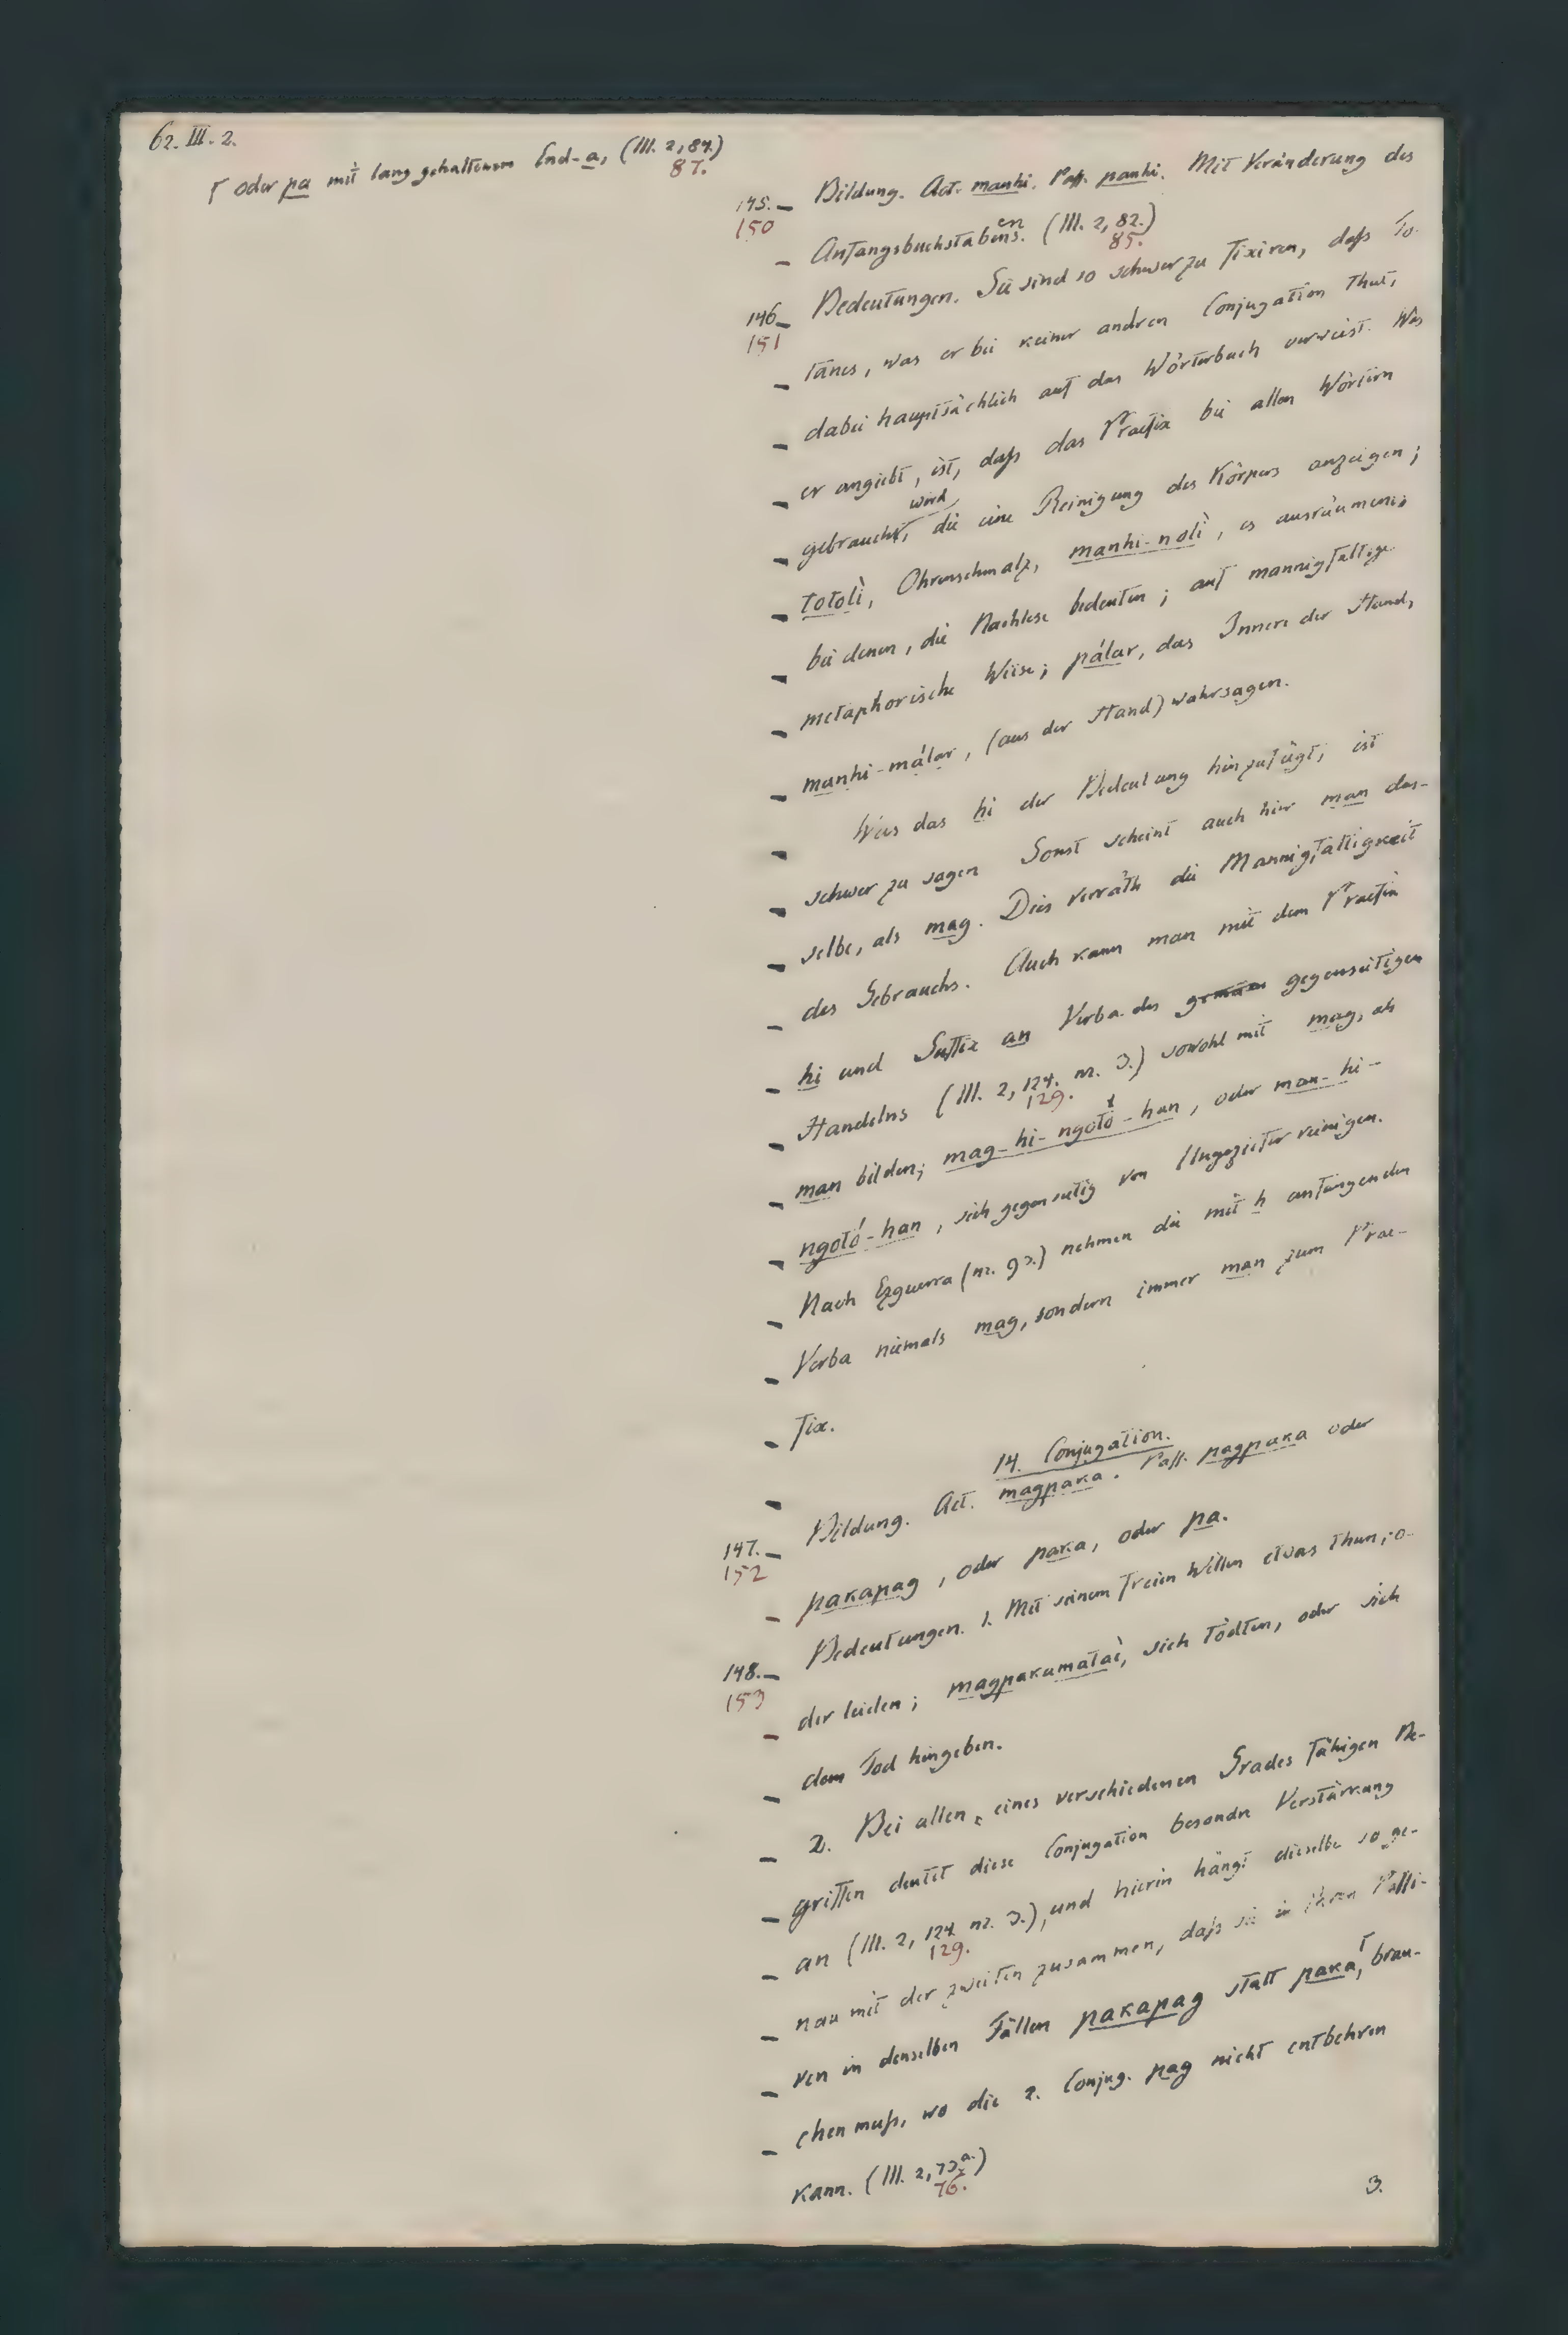 62. III. 2.
ſ oder pa mit lang gehaltenem End-a, (III. 2, 84.)
87.
145. Bildung. Act. manhi. Paſſ. panhi. Mit Veränderung des
150
Anfangsbuchstabens. (III. 2, 82.)
en
85.
146. Bedeutungen. Sie sind so schwer zu fixiren, daſs To-
151
tanes, was er bei keiner andren Conjugation thut,
dabei hauptsächlich auf das Wörterbuch verweist. Was
er angiebt, ist, daſs das Praefix bei allen Wörtern
wird
gebraucht, die eine Reinigung des Körpers anzeigen;
totolì, Ohrenschmalz, manhi-nolì, es ausräumen;
bei denen, die Nachlese bedeuten; auf mannigfaltige
metaphorische Weise; pálar, das Innere der Hand,
manhi-málar, (aus der Hand) wahrsagen.
Was das hi der Bedeutung hinzufügt, ist
schwer zu sagen Sonst scheint auch hier man das-
selbe, als mag. Dies verräth die Mannigfaltigkeit
des Gebrauchs. Auch kann man mit dem Praefix
hi und Suffix an Verba des gegenseitigen
Handelns (III. 2, 124. nr. 3.) sowohl mit mag, als
129.
man bilden; mag-hi-ngotó-han, oder man-hi-
ngotó-han, sich gegenseitig von Ungeziefer reinigen.
Nach Ezguerra (nr. 93.) nehmen die mit h anfangenden
Verba niemals mag, sondern immer man zum Prae-
fix.
14. Conjugation.
147. Bildung. Act. magpaka. Paſſ. pagpaka oder
152
pakapag, oder paka, oder pa.
148. Bedeutungen. 1. Mit seinem freien Willen etwas thun, o-
153
der leiden; magpakamataì, sich tödten, oder sich
dem Tod hingeben.
2. Bei allen, eines verschiedenen Grades fähigen Be-
griffen deutet diese Conjugation besondre Verstärkung
an (III. 2, 124. nr. 3.), und hierin hängt dieselbe so ge-
129.
nau mit der zweiten zusammen, daſs sie in ihren Paſſi-
ven in denselben Fällen pakapag statt paka,ſ brau-
chen muſs, wo die 2. Conjug. pag nicht entbehren
kann. (III. 2, 73.a.)
76.
3.